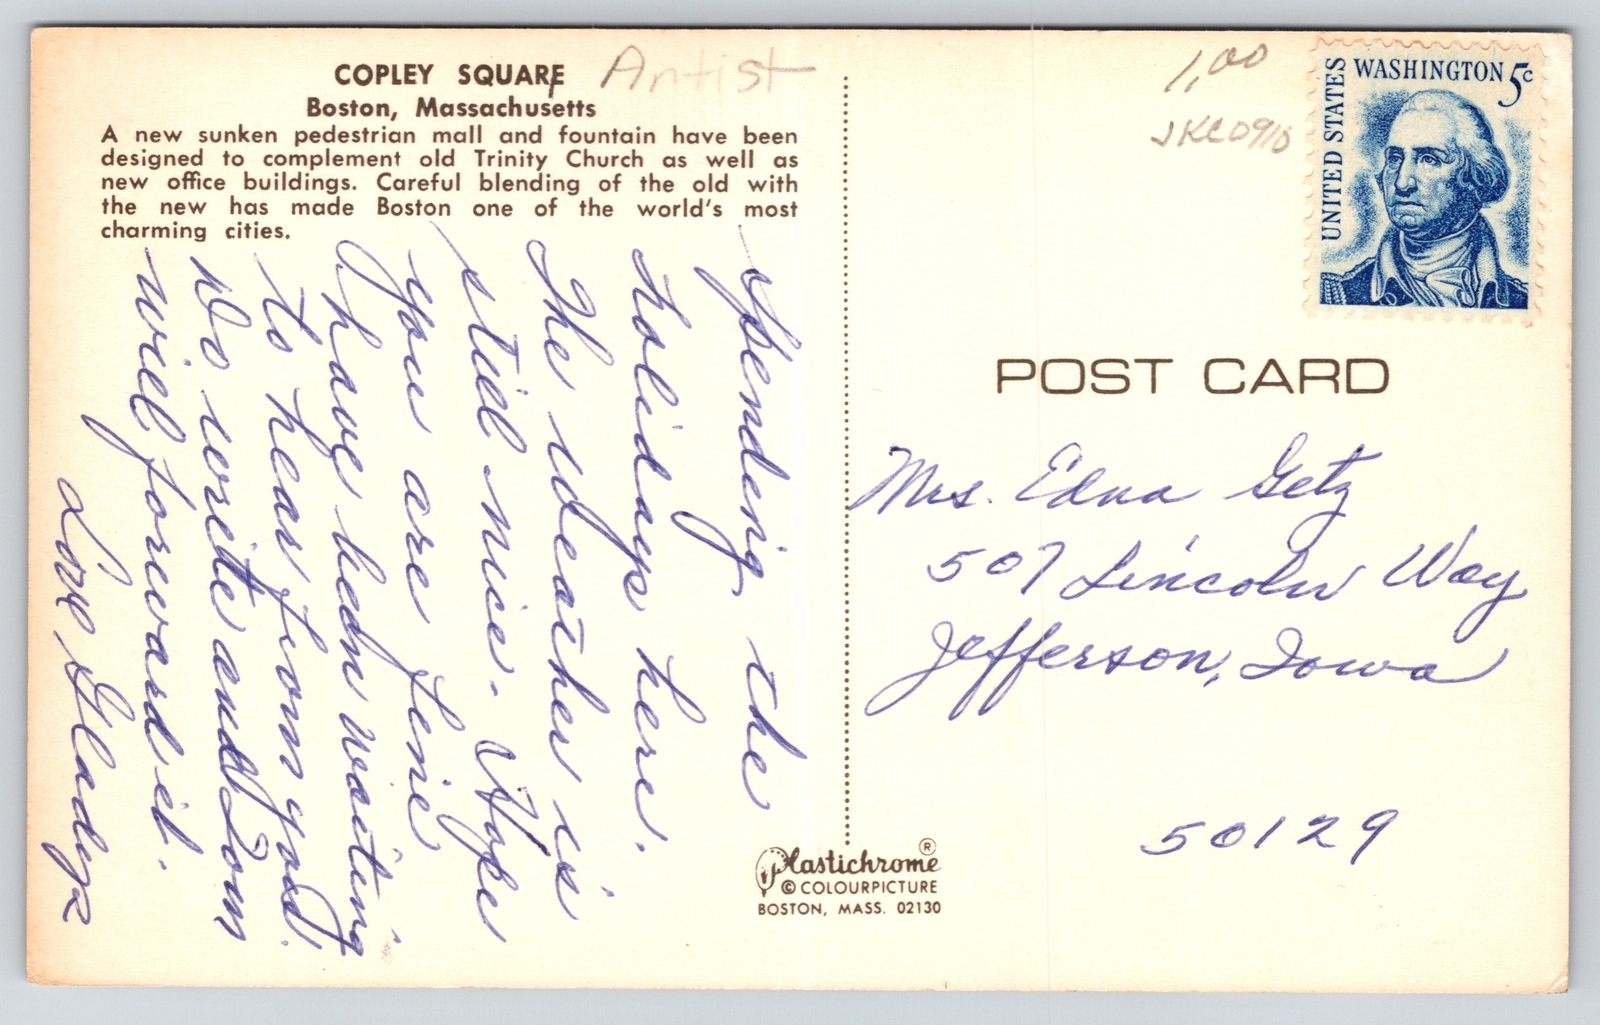 COPLEY SQUARE
Artist
Boston, Massachusetts
A new sunken pedestrian mall and fountain have been
designed to complement old Trinity Church as well as
new office buildings. Careful blending of the old with
the new has made Boston one of the world's most
charming cities.
Spending the
holidays here.
The weather is
still nice. Hope
you are fine
I have been waiting
to hear from you.
Do write and Dom
will foreward it.
Love, Gladys
1,00
JKCD910
UNITED STATES
WASHINGTON 5c
POST CARD
Mrs. Edna Getz
507 Lincoln Way
Jefferson, Iowa
50129
Plastichrome ®
© COLOURPICTURE
BOSTON, MASS. 02130